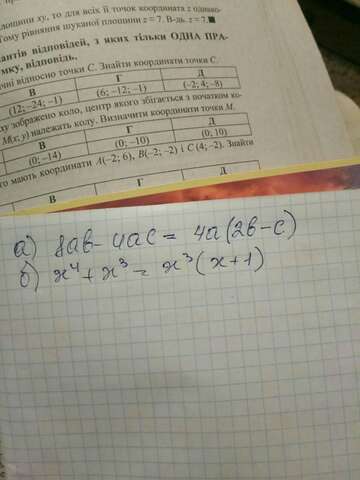 площини xy, то для всіх її точок координата z однако-
Тому рівняння шуканої площини z = 7. В-дь. z = 7.■
іантів відповідей, з яких тільки ОДНА ПРА-
умку, відповідь.
ичні відносно точки C. Знайти координати точки C.
В Г Д
(12; –24; –1) (6; –12; –1) (–2; 4; –8)
ху зображено коло, центр якого збігається з початком ко-
M(x; y) належать колу. Визначити координати точки M.
В Г Д
(0; –14) (0; –10) (0; 10)
го мають координати A(–2; 6), B(–2; –2) і C (4; –2). Знайти
В Г Д
а) 8ab - 4ac = 4a(2b-c)
б) x⁴ + x³ = x³(x+1)